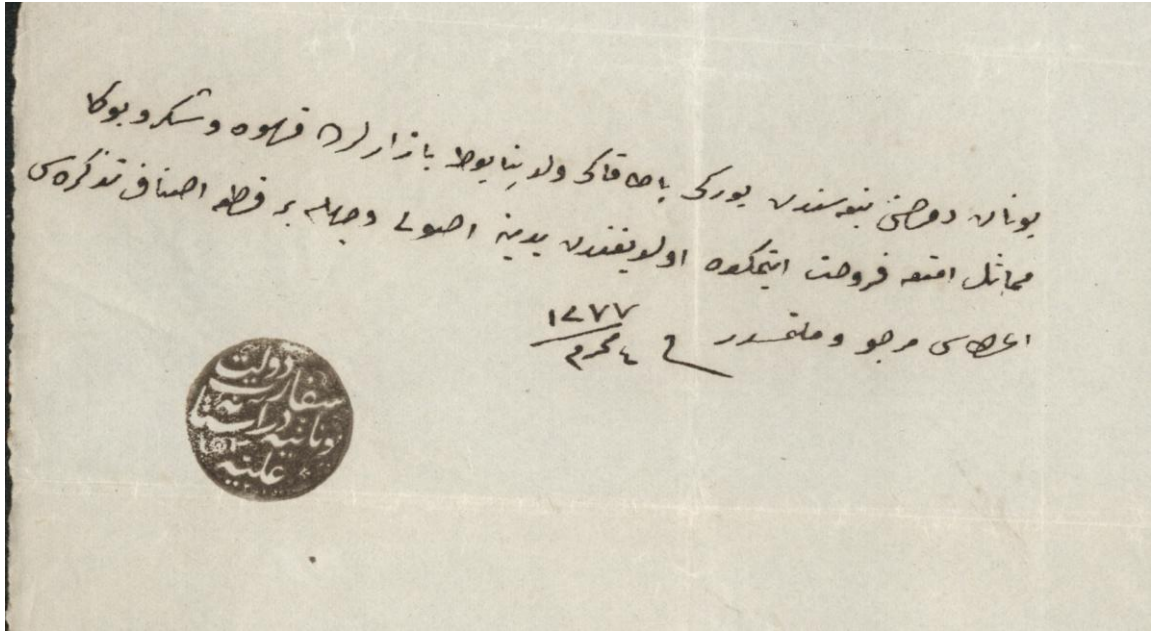 يونان دولتى تبعه سندن يوركى باصاقاكى ولد پنايوط بازارلرده قهوه و شكر و بوكا
مماثل امتعه فروخت ايتمكده اولديغندن يدينه اصولى وجهله بر قطعه اصناف تذكره سى
اعطاسى مرجو و ملتمسدر فى ٤ محرم ١٢٧٧
سفارت دولت
يونانيه در آستانه
عليه